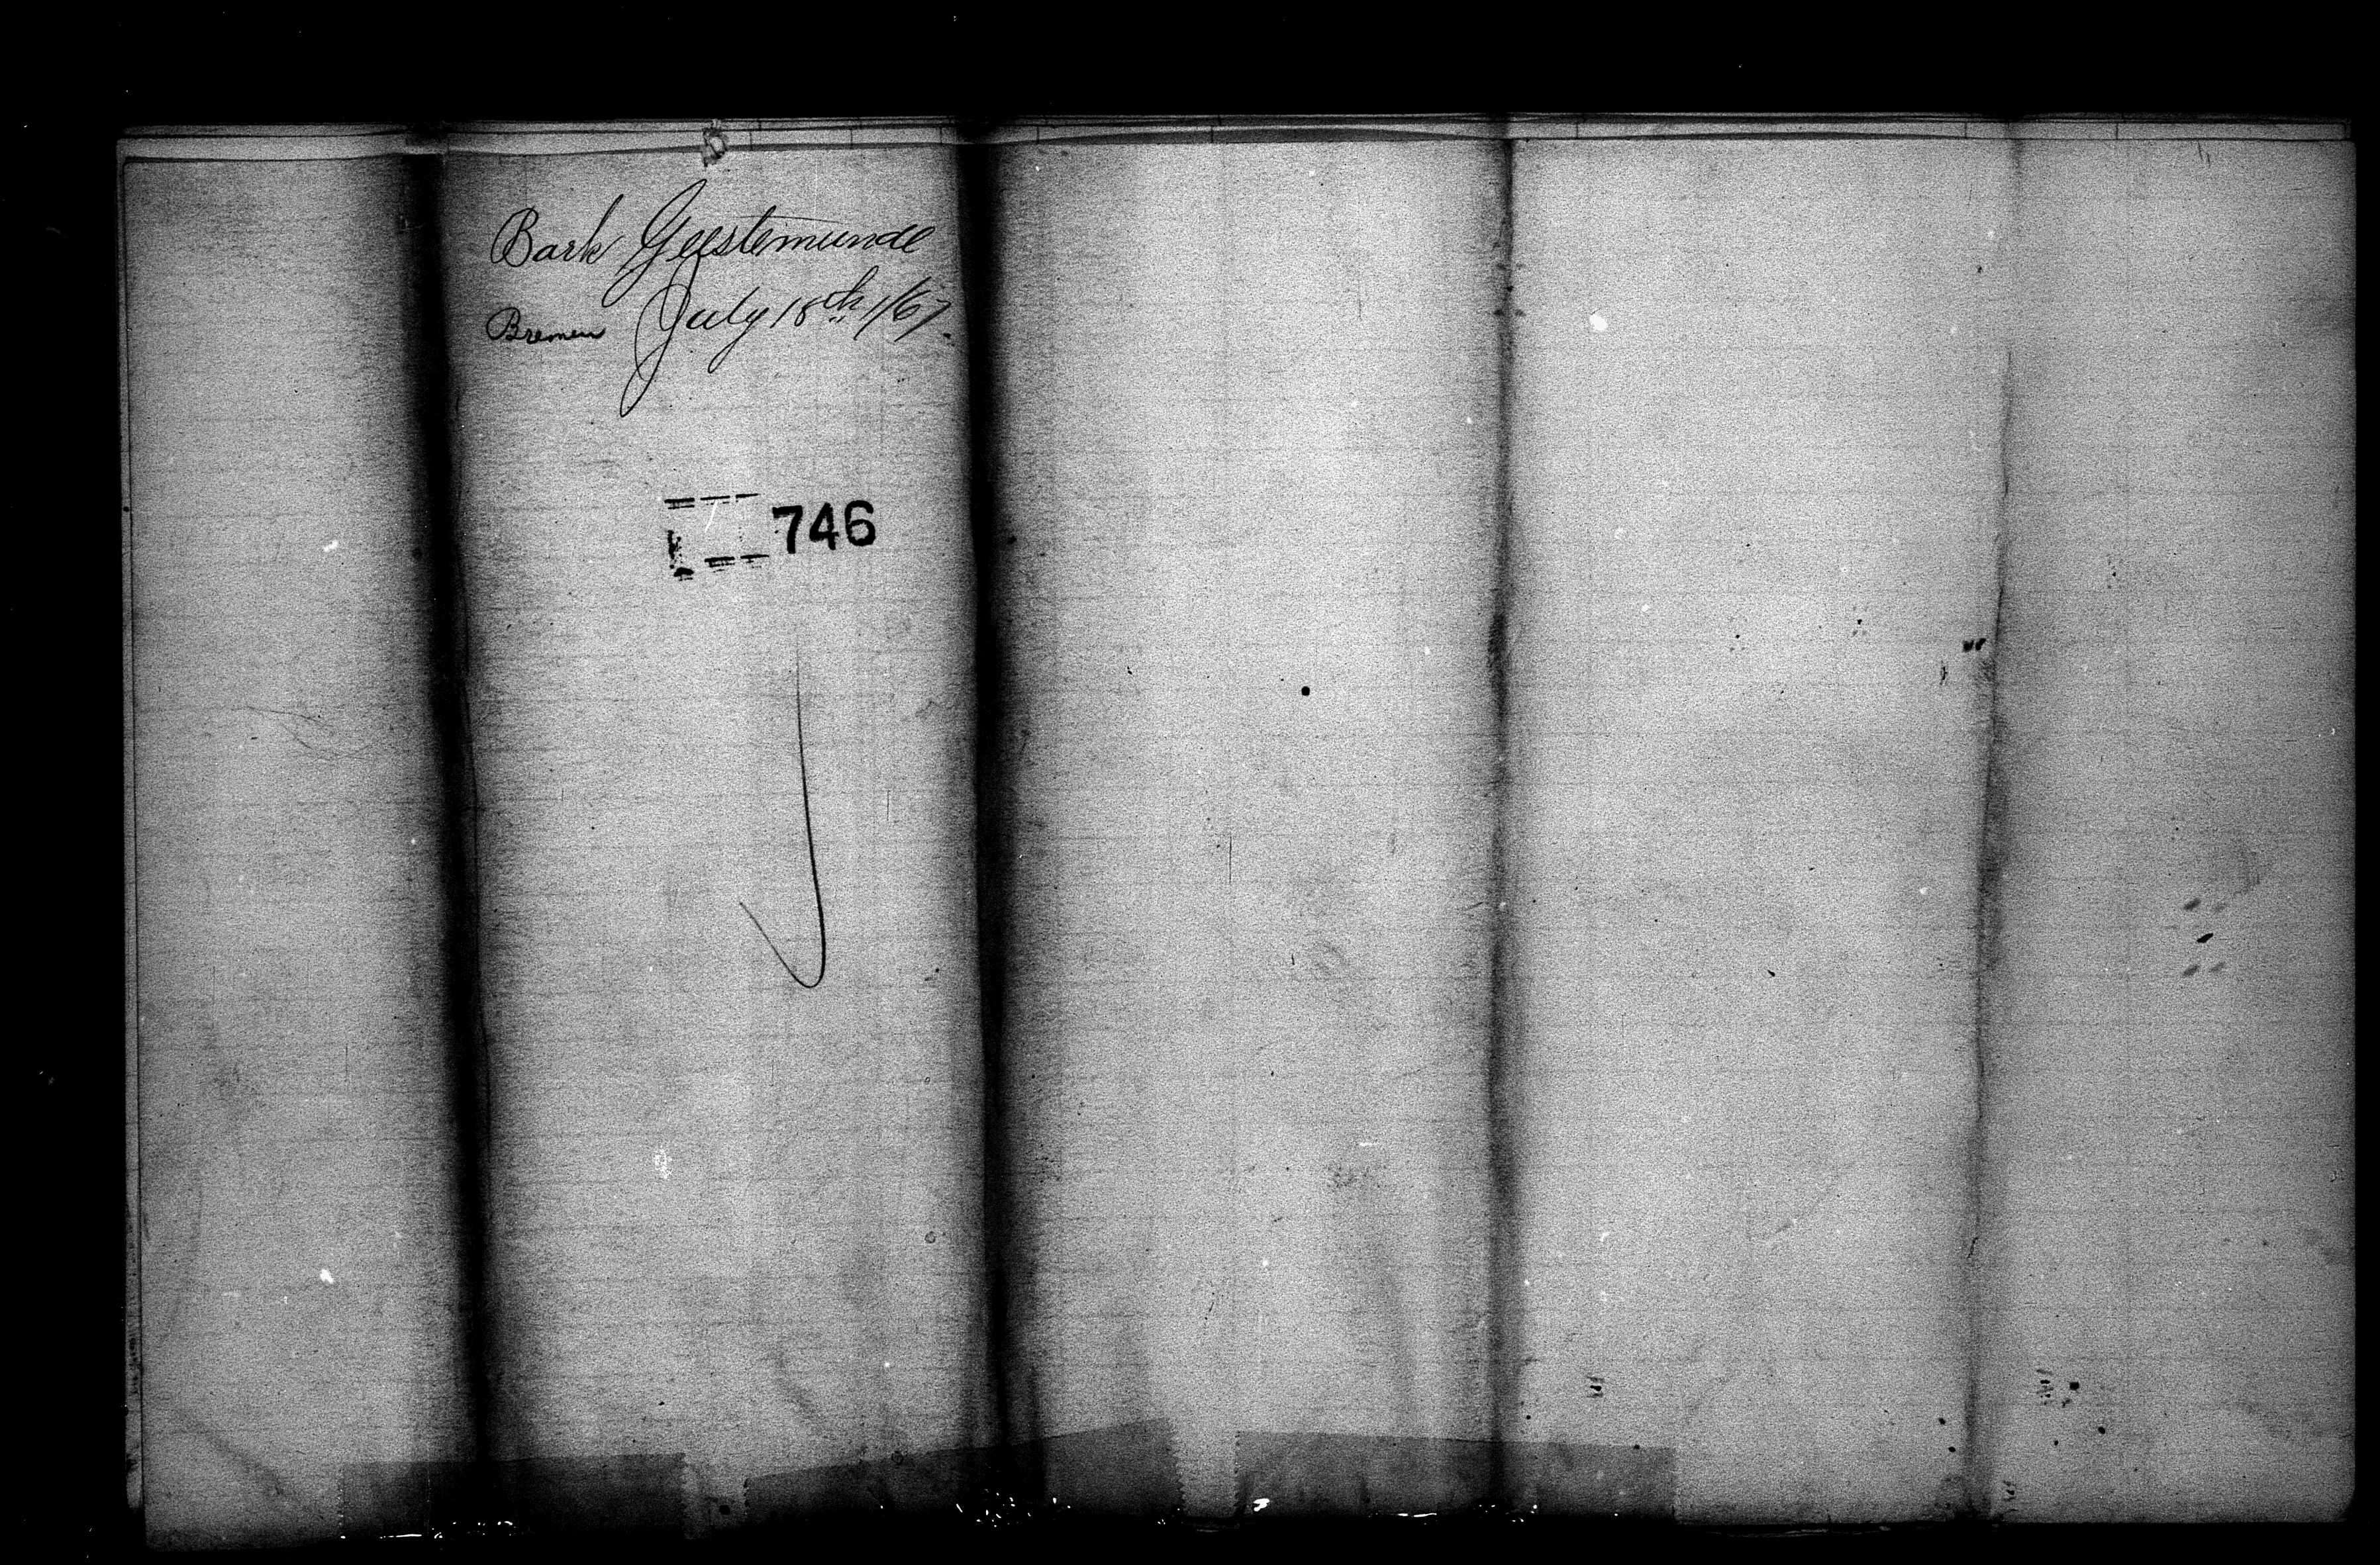 Bark Geestemunde
Bremen July 18th 1/67
746